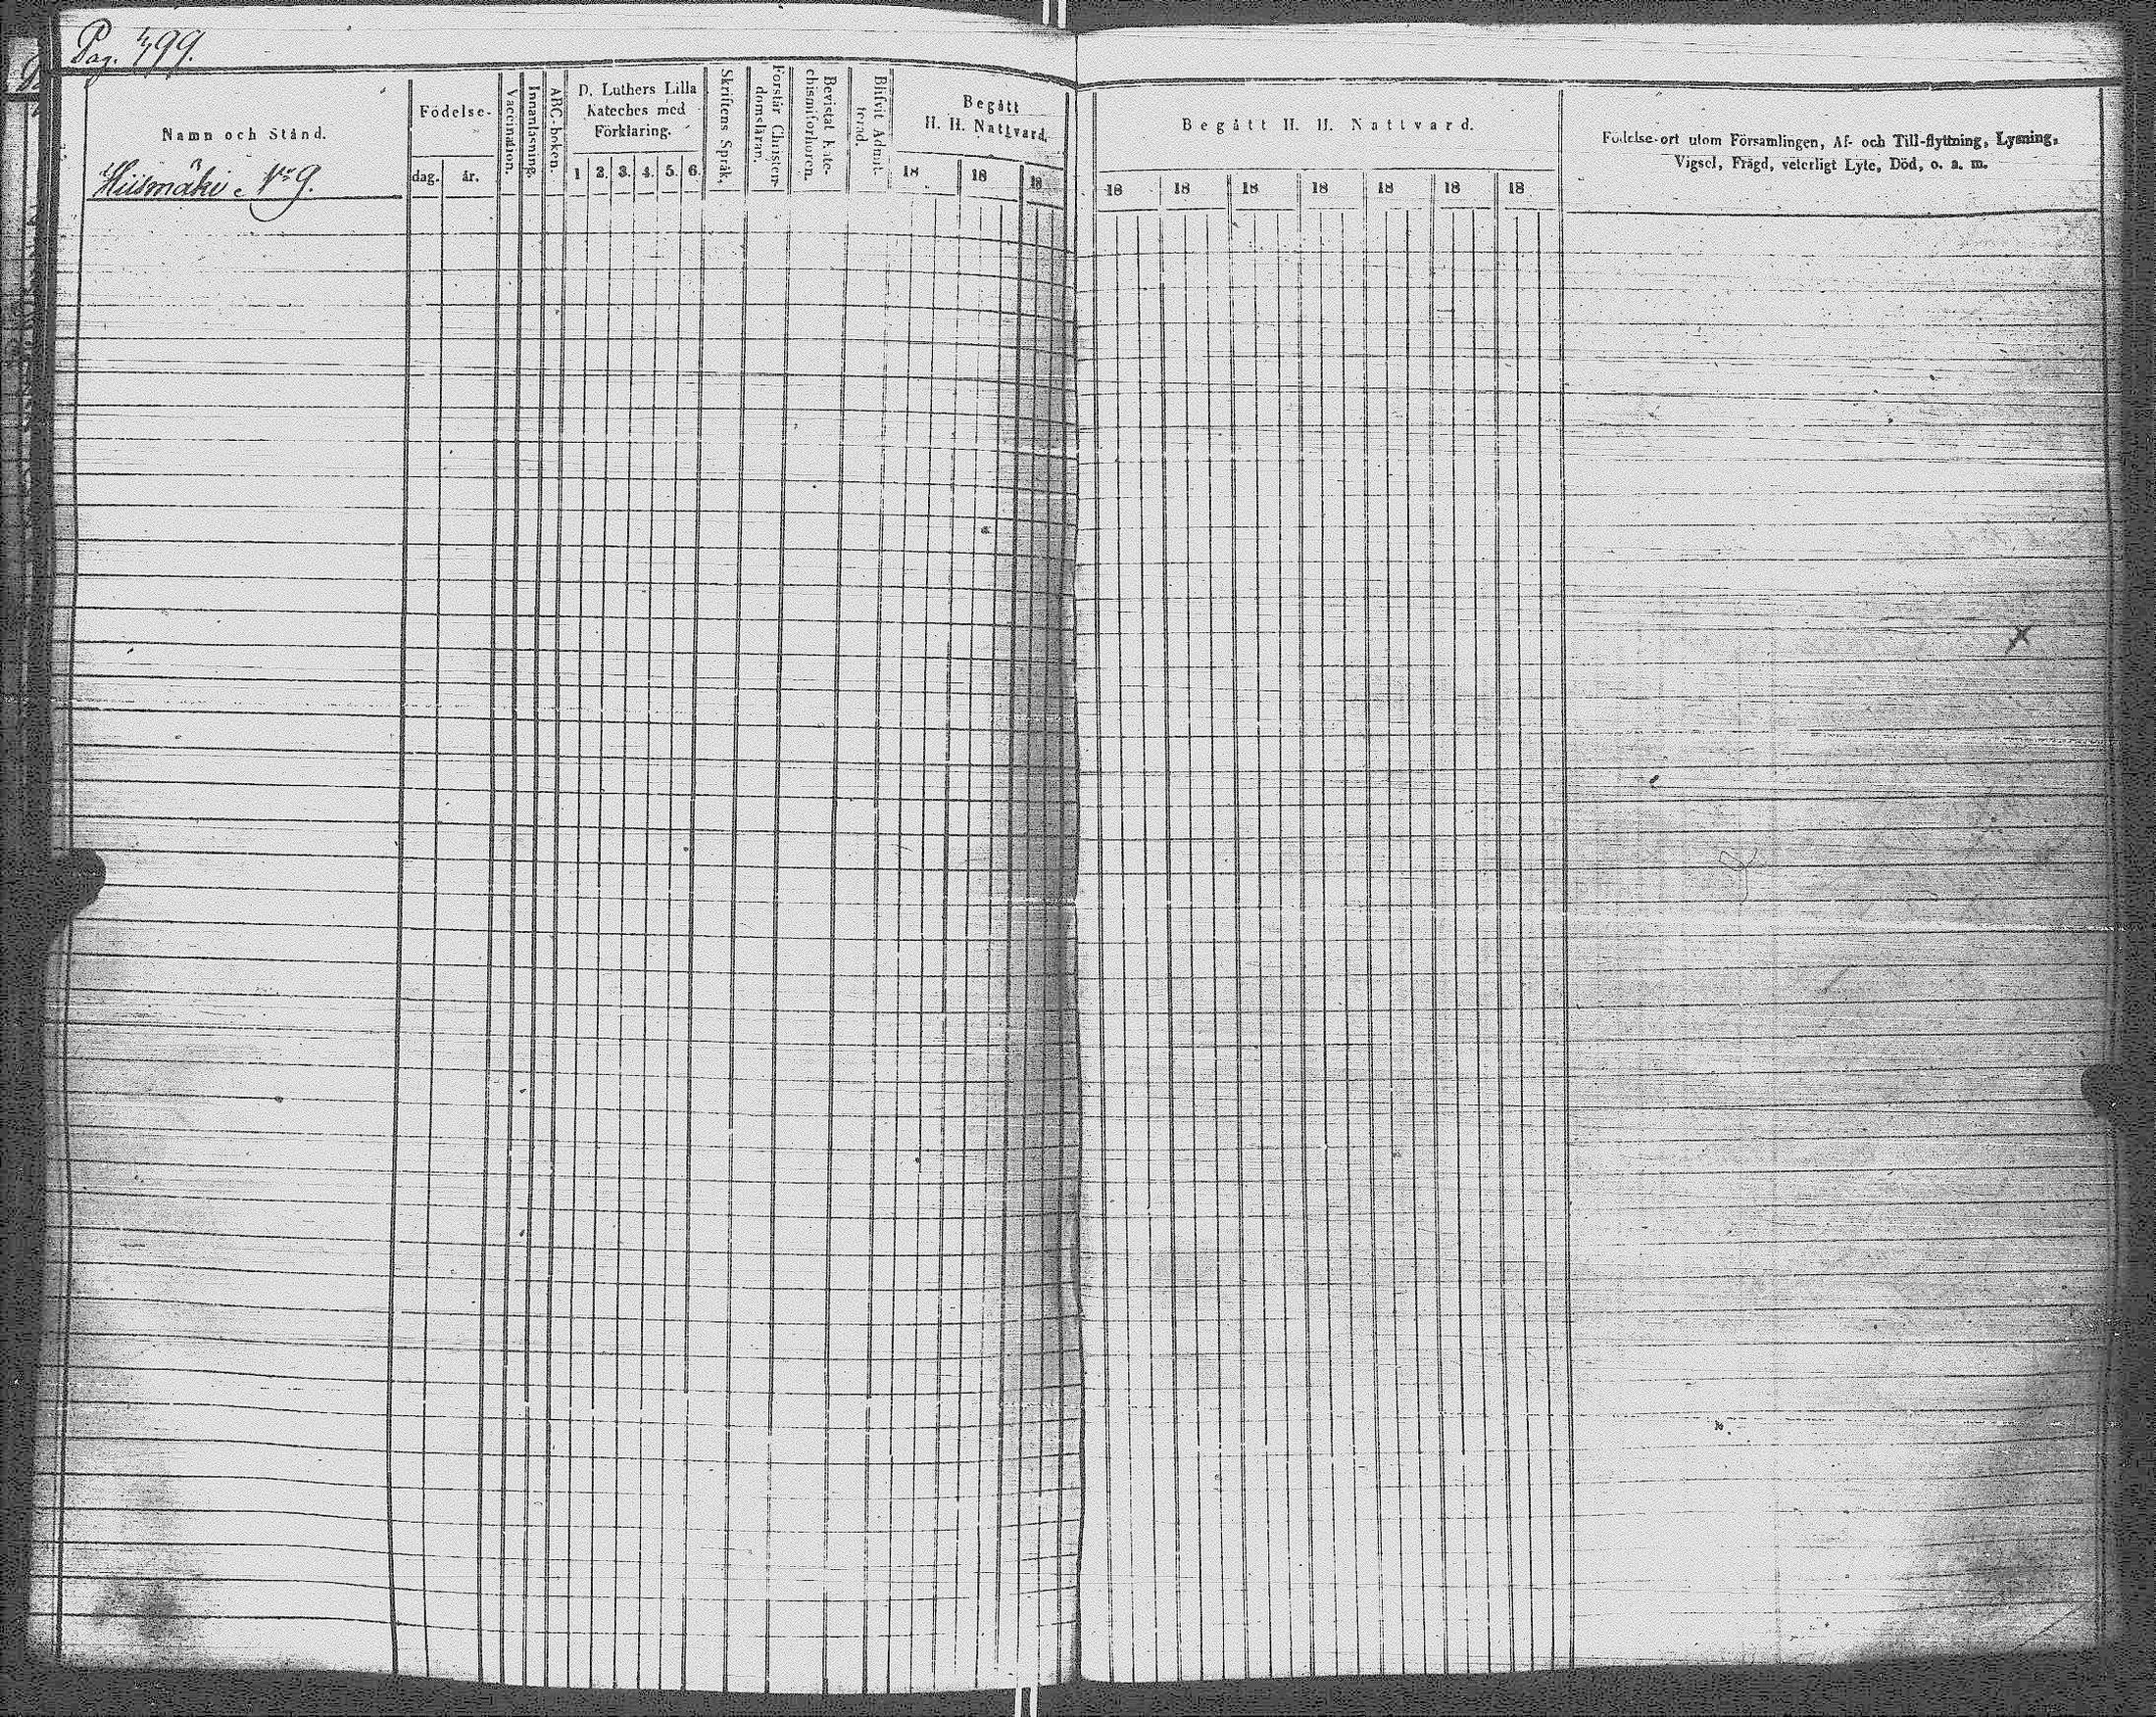 Pag. 499.
Namn och Stånd.
Hiismäki Nr 9.
Födelse-
dag. år.
Vaccination.
Innanläsning.
ABC-boken.
D. Luthers Lilla
Kateches med
Förklaring.
1 2. 3. 4. 5. 6.
Skriftens Språk.
Förstår Christen-
domsläran.
Bevistat kate-
chismiförhören.
Blifvit Admit-
terad.
Begått
H. H. Nattvard.
18 18 18
Begått H. H. Nattvard.
18 18 18 18 18 18 18
Födelse-ort utom Församlingen, Af- och Till-flyttning, Lysning,
Vigsel, Frägd, veterligt Lyte, Död, o. s. m.